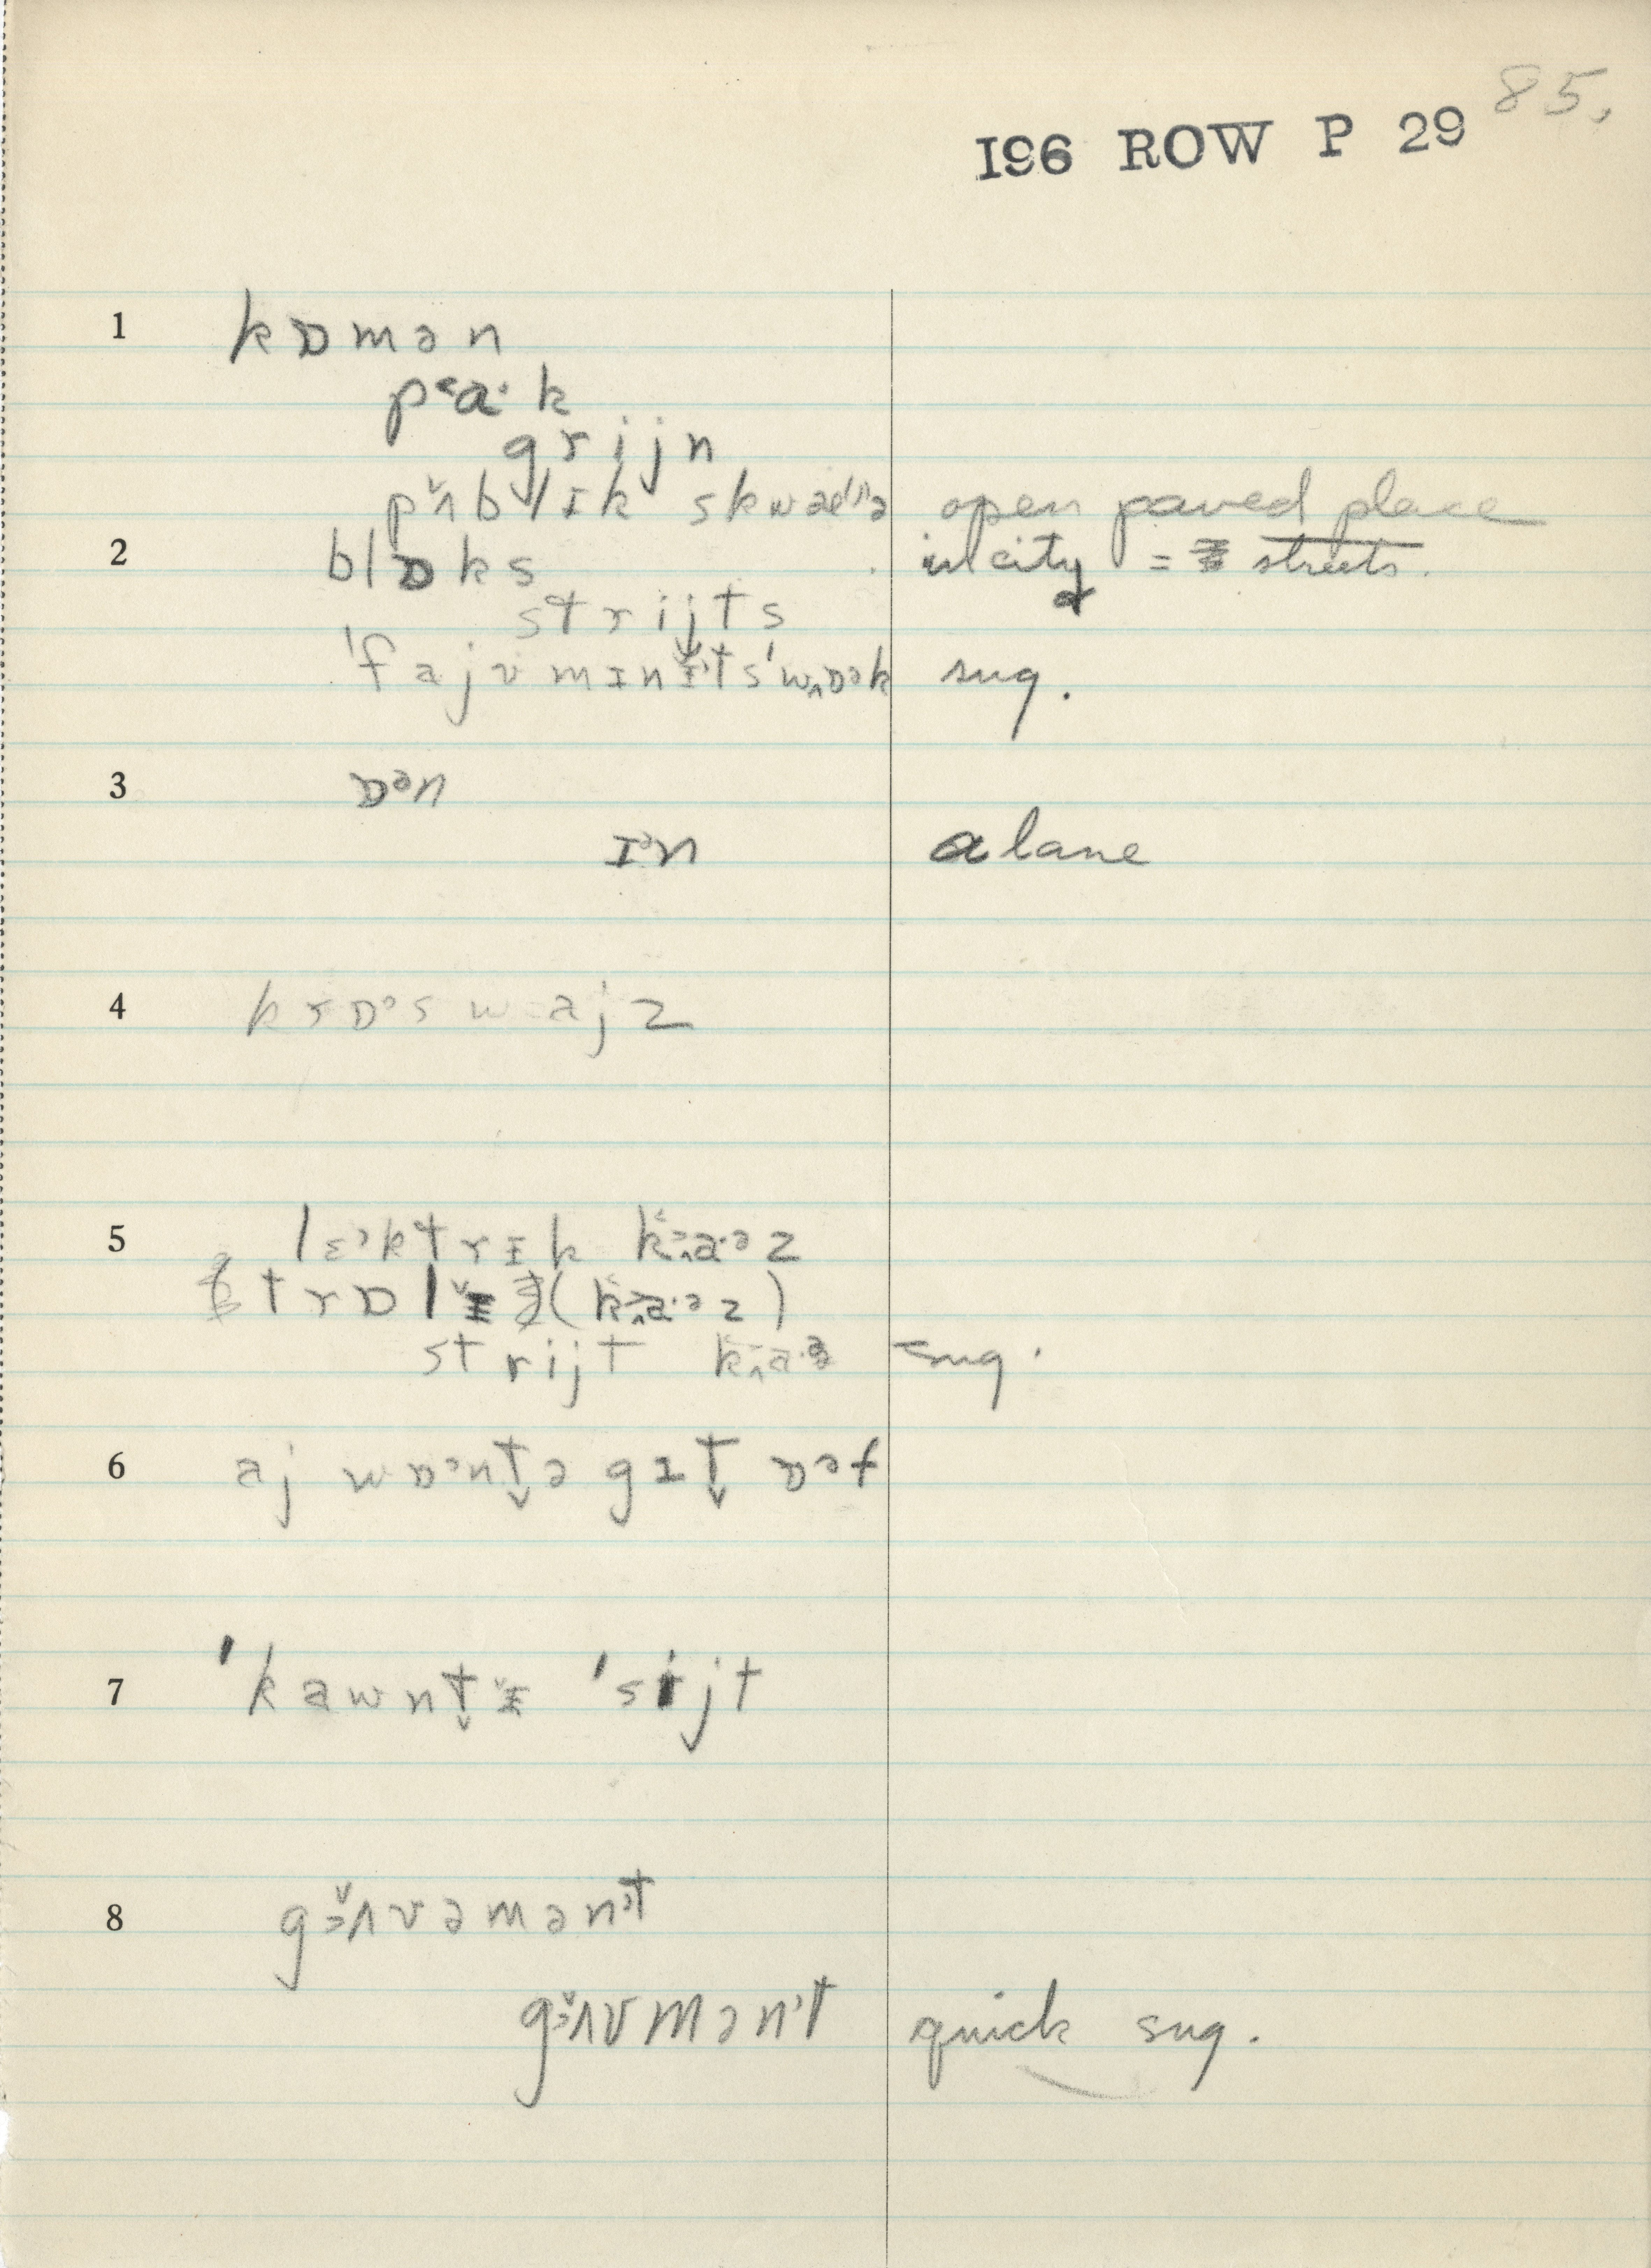 85.
I96 ROW P 29
1 kɒmən
pᶜa·k
grijn
pʌ̌blɪk skwæəʳə open paved place
2 blɒks in city = streets.
strijts
'fajvmɪnɪ̌ts'wɒək sug.
3 ɒᵊn
ɪᵊn a lane
4 krɒᵊswajz
5 lɛᵊktrɪk
trɒlɪ̌
strijt sug.
6 aj wɒᵊnt̬ə gɪt̬ ɒəf
7 'kawnt̬ɪ̌ 'sijt
8 gɜ̌ʌvəmənᵊt
gɜ̌ʌvmənᵊt quick sug.